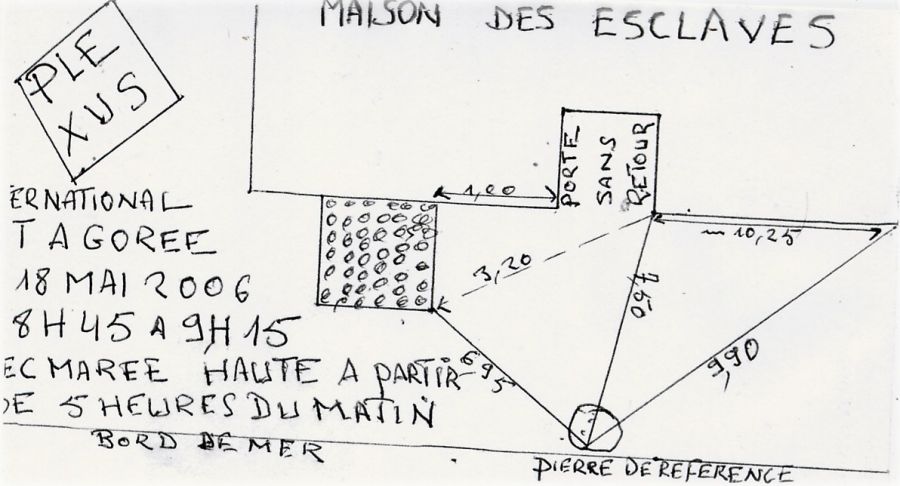 MAISON DES ESCLAVES
PLE
XUS
PORTE
SANS
RETOUR
1,00
10,25
3,20
7,50
6,95
9,90
ERNATIONAL
T A GOREE
18 MAI 2006
8H45 A 9H15
EC MAREE HAUTE A PARTIR
DE 5 HEURES DU MATIN
BORD DE MER
PIERRE DE REFERENCE